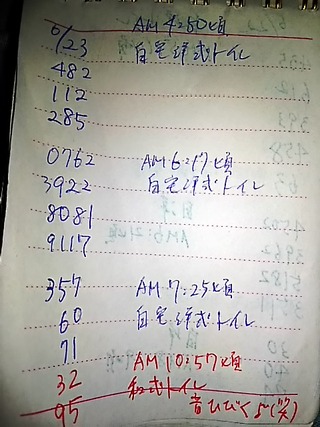 AM 4:50頃
6/23 自宅洋式トイレ
482
112
285
0762 AM 6:17頃
3922 自宅洋式トイレ
8081
9117
357 AM 7:25頃
60 自宅洋式トイレ
71
AM 10:57頃
32 和式トイレ
95 音ひびく